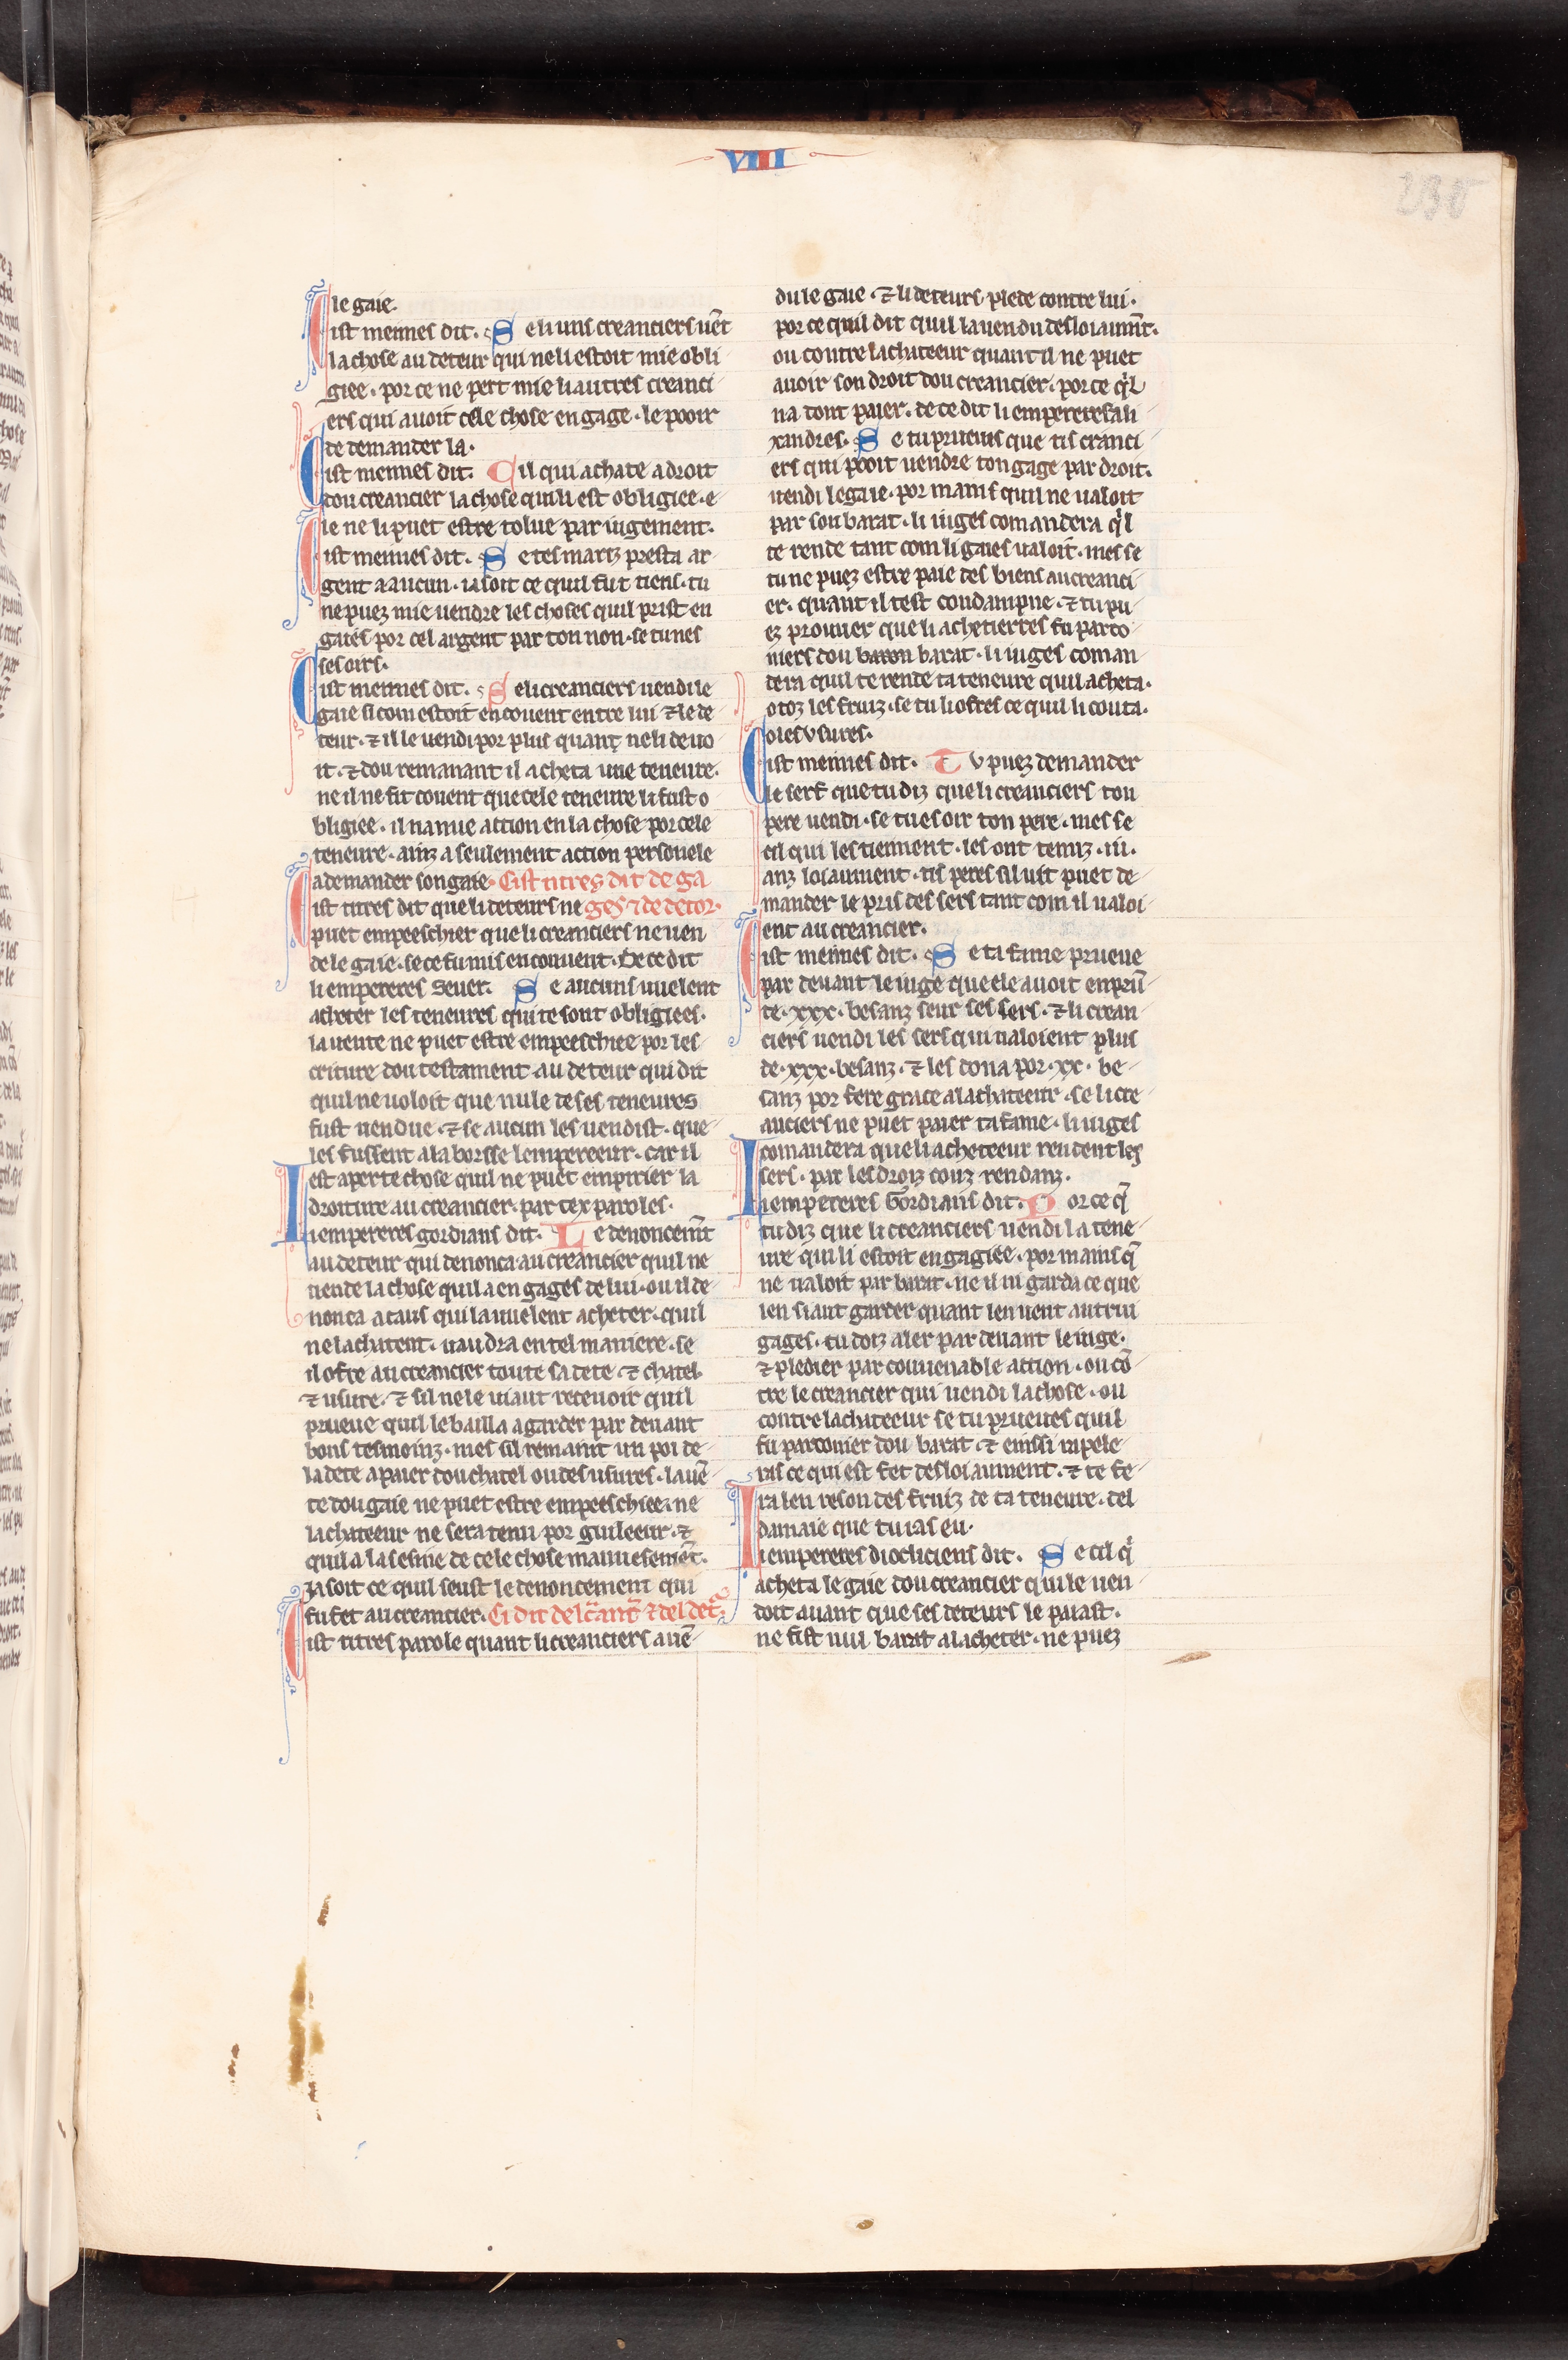 VIII
230
le gaie.
Cist meimes dit. Se li uns creanciers uēt
la chose au deteur qui ne li estoit mie obli
giee. por ce ne pert mie li autres creanci
ers qui auoit cele chose en gage. le pooir
de demander la.
Cist meimes dit. Cil qui achate a droit
dou creancier la chose quili est obligiee. e
le ne li puet estre tolue par iugement.
Cist meimes dit. Se tes mariz presta ar
gent a aucun. ia soit ce quil fut tiens. tu
ne puez mie uendre les choses quil prist en
gaies por cel argent par ton non. se tu nes
ses oirs.
Cist meimes dit. Se li creanciers uendi le
gaie si com estoit en couent entre lui ⁊ le de
teur. ⁊ il le uendi por plus quanţ neli deuo
it. ⁊ dou remanant il acheta une teneure.
ne il ne fit couent que cele teneure li fust o
bligiee. il na mie action en la chose por cele
teneure. ainz a seulement action personele
a demander son gaie. Cist titres dit de ga
Cist titres dit que li deteurs ne ges ⁊ de detor.
puet empeeschier que li creanciers ne uen
de le gaie. se ce fu mis en conuent. De ce dit
li empereres Seuer. Se aucuns uuelent
acheter les teneures qui te sont obligiees.
la uente ne puet estre empeeschiee por les
criture dou testament au deteur qui dit
quil ne uoloit que nule de ses teneures
fust uendue. ⁊ se aucun les uendist. que
les fussent a la borsse lempereeur. car il
est aperte chose quil ne puet empirier la
droiture au creancier. par tex paroles.
Li empereres gordians dit. Le denoncem̄t
au deteur qui denonca au creancier quil ne
uende la chose quil a en gages de lui. ou il de
nonca a caus qui la uuelent acheter. quil
ne lachatent. uaudra en tel maniere. se
il ofre au creancier toute sa dete. ⁊ chatel
⁊ usure. ⁊ sil ne le uiaut receuoir quil
prueue quil le bailla a garder par deuant
bons tesmoinz. mes sil remaint un poi de
la dete a paier dou chatel ou des usures. la uē
te dou gaie ne puet estre empeeschiee. ne
lachateeur ne sera tenu por guileeur. ⁊
quil a la sesine de cele chose mauuesemēt.
Ja soit ce quil seust le denoncement qui
fu fet au creancier. Ci dit del c̄anc̄ ⁊ del det̄
Cist titres parole quant li creanciers a uē
du le gaie. ⁊ li deteurs plede contre lui.
por ce quil dit quil la uendu desloiaum̄t.
ou contre lachateeur quant il ne puet
auoir son droit dou creancier. por ce q̄l
na dont paier. de ce dit li empereres ali
xandres. Se tu prueuis que tis cranci
ers qui pooit uendre ton gage par droit.
uendi le gaie. por mains quil ne ualoit
par son barat. li iuges comandera q̄l
te rende tant com li gaies ualoit. mes se
tu ne puez estre paie des biens au creanci
er. quant il est condampne. ⁊ tu pu
ez prouuer que li achetierres fu parco
niers dou baron barat. li iuges coman
dera quil te rende ta teneure quil acheta.
o toz les fruiz. se tu li ofres ce quil li couta.
o ses usures.
Cist meimes dit. Tu puez demander
le serf que tu diz que li creanciers ton
pere uendi. se tu es oir ton pere. mes se
cil qui les tiennent. les ont tenuz .iii.
anz loiaument. tis peres sil uit puet de
mander le pris des sers tant com il ualoi
ent au creancier.
Cist meimes dit. Se ta fame prueue
par deuant le iuge que ele auoit enprū
te .xxx. besanz seur ses sers. ⁊ li crean
ciers uendi les sers qui ualoient plus
de .xxx. besanz. ⁊ les dona por .xx. be
sanz por fere grace a lachateeur. se li cre
anciers ne puet paier ta fame. li iuges
comandera que li acheteeur rendent les
sers. par les droiz couz rendanz.
Li empereres Gordians dit. Por ce q̄
tu diz que li creanciers uendi la tene
ure qui li estoit engagiee. por mains q̄
ne ualoit par barat. ne il ni garda ce que
len siaut garder quant len uent autrui
gages. tu doiz aler par deuant le iuge.
⁊ pledier par couuenable action. ou cō
tre le creancier qui uendi la chose. ou
contre lachateeur se tu prueues quil
fu parconier dou barat. ⁊ einssi rapele
ras ce qui est fet desloiaument. ⁊ te fe
ra len reson des fruiz de ta teneure. del
damaie que tu ias eu.
Li empereres diocliciens dit. Se cil q̄
acheta le gaie dou creancier qui le uen
doit auant que ses deteurs le paiast.
ne fist nul barat a lacheter. ne puez